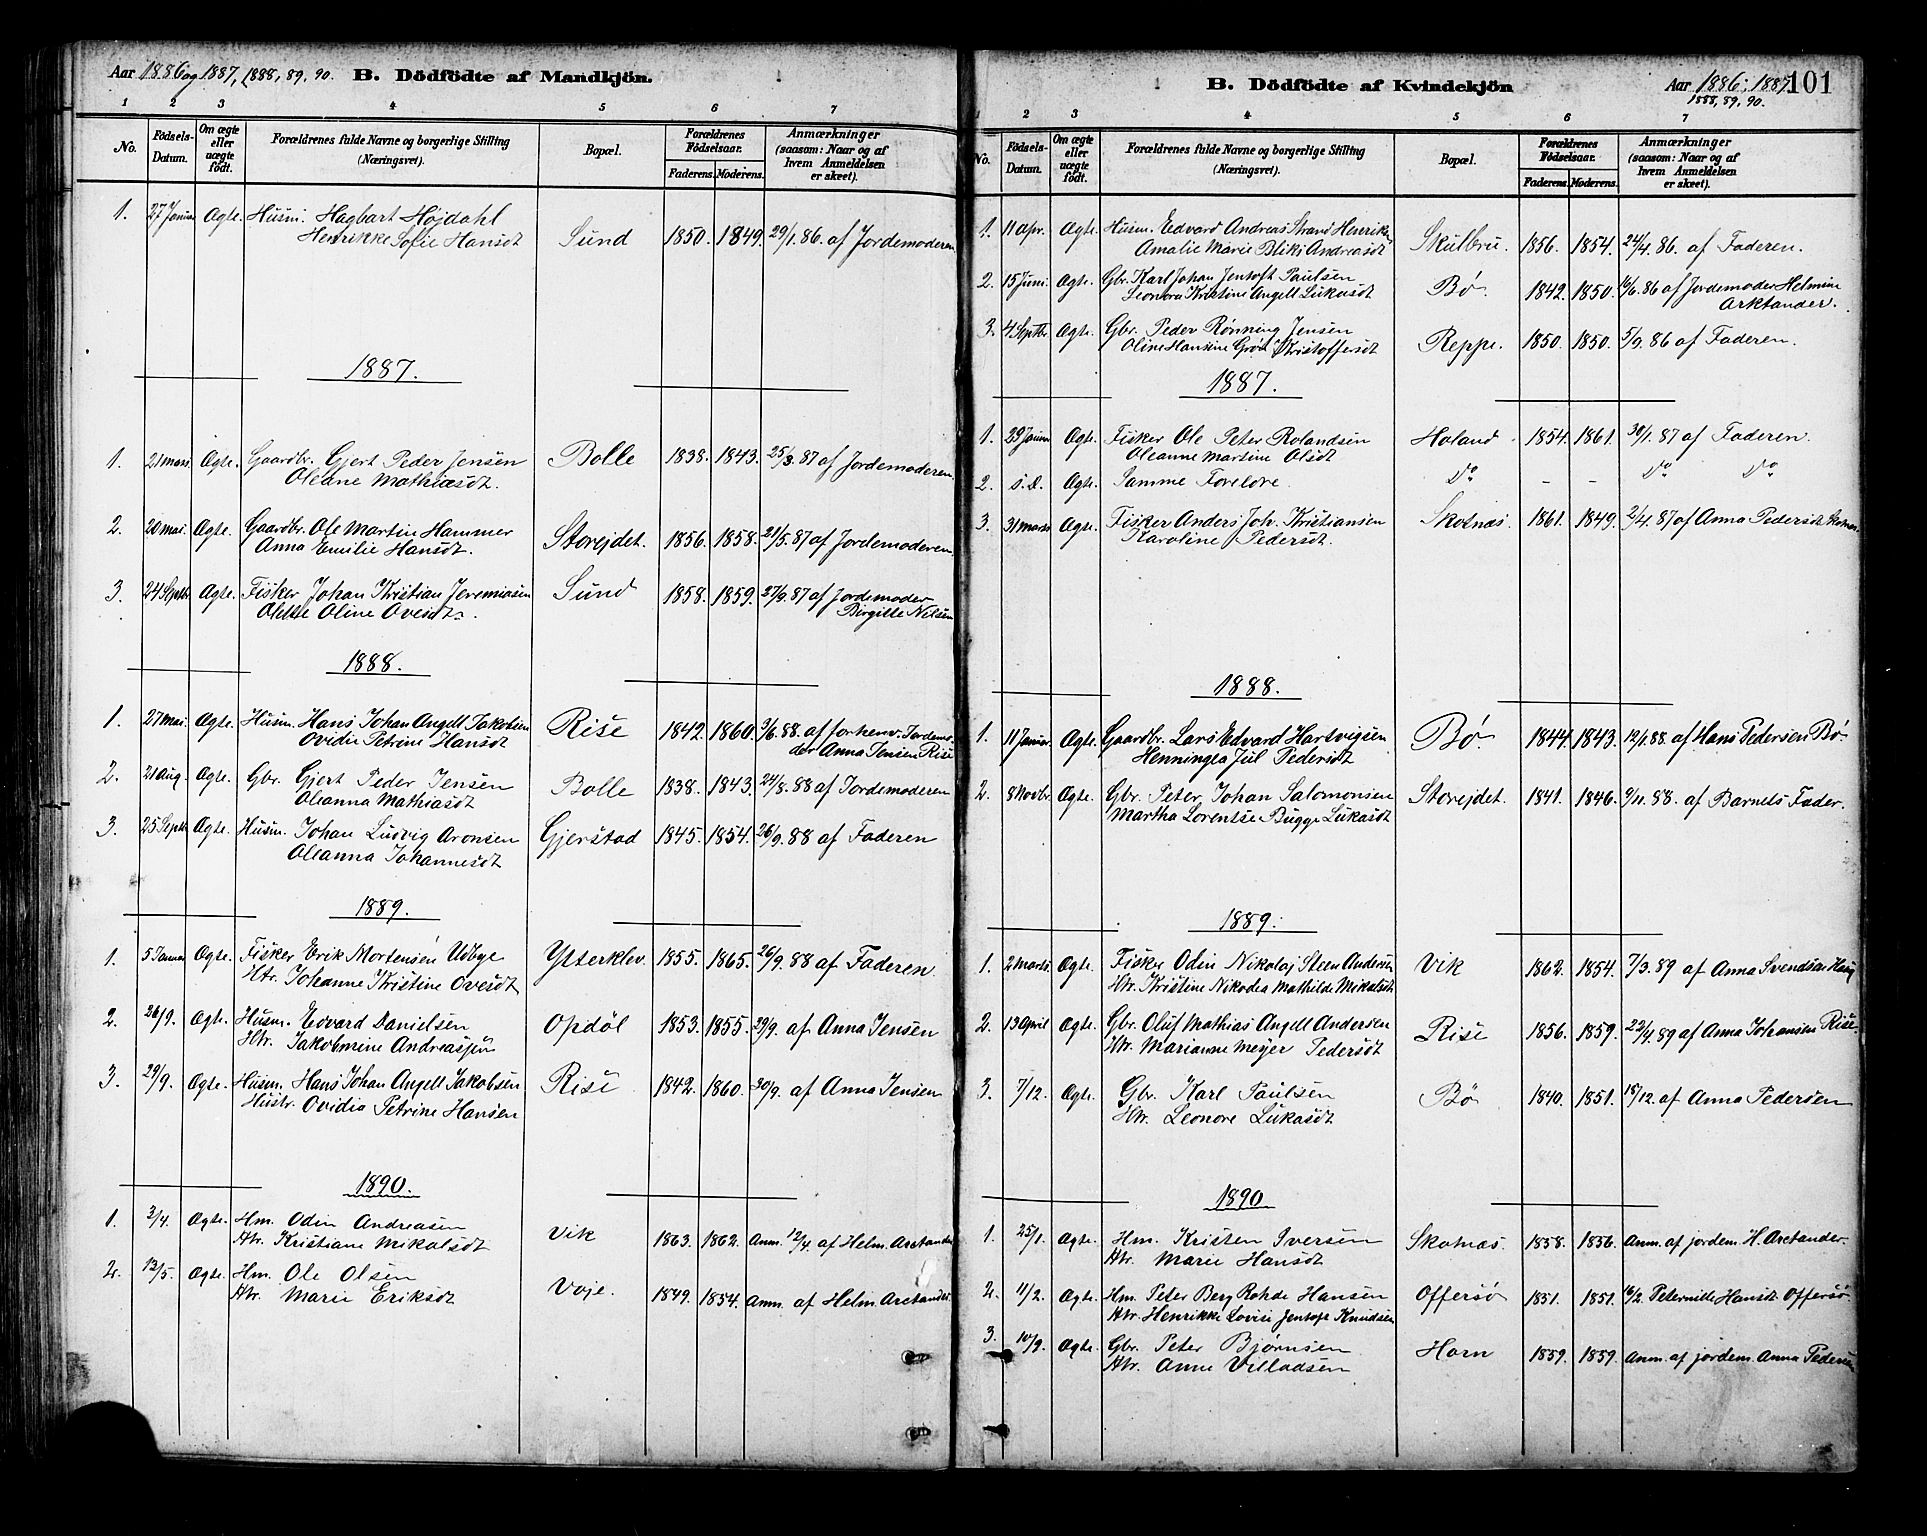 Aar 1886 og 1887, 1888, 89, 90. B. Dödfödte af Mandkjön.
1 2 3 4 5 6 7
No. Födsels-Datum. Om ægte eller uægte födt. Forældrenes fulde Navne og borgerlige Stilling (Næringsvei). Bopæl. Forældrenes Födselsaar. Faderens. Moderens. Anmærkninger (saasom: Naar og af hvem Anmeldelsen er skeet).
1. 27 Januar Ægte. Husm. Hagbart Højdahl Sund 1850. 1849. 29/1. 86. af Jordemoderen
Henrikke Sofie Hansdt
1887.
1. 21 mars Ægte. Gaardbr. Gjert Peder Jensen Bolle 1838. 1843. 25/3. 87 af Jordemoderen
Oleane Mathiasdt.
2. 20 mai. Ægte. Gaardbr. Ole Martin Hammer Storejdet. 1856. 1858. 21/5. 87 af Jordemoderen
Anna Emilie Hansdt.
3. 24 Septbr Ægte. Fisker Johan Kristian Jeremiasen Sund 1858. 1859. 27/9. 87 af Jordemoder
Oline Ovesdt. Birgitte Nilsen
1888.
1. 27 mai. Ægte. Husm. Hans Johan Angell Jakobsen Rise 1842. 1860. 3/6. 88. af forhenv. Jordemo-
Ovidie Petrine Hansdt der Anna Jensen Rise
2. 21 Aug. Ægte. Gbr. Gjert Peder Jensen Bolle 1838. 1843. 24/8. 88 af Jordemoderen
Oleanna Mathiasdt
3. 25 Septbr Ægte. Husm. Johan Ludvig Aronsen Gjerstad 1845. 1854. 26/9. 88 af Faderen
Oleanna Johannesdt
1889.
1. 5 Januar Ægte. Fisker Erik Mortensen Udbye Ytterklev. 1855. 1865. 26/9. 88 af Faderen
Htr. Johanne Kristine Ovesdt
2. 26/9. Ægte. Husm. Edvard Danielsen Opdøl 1853. 1855. 29/9. af Anna Jensen
Htr. Jakobmine
3. 29/9. Ægte. Husm. Hans Johan Angell Jakobsen Rise 1842. 1860. 30/9. af Anna Jensen
Hustr. Ovidia Petrine Hansen
1890.
1. 3/4. Ægte. Hm. Odin Andreasen Vik 1863. 1862. Anm. 12/4. af Helm. Arctander
Htr. Kristiane Mikalsdt
2. 12/5. Ægte. Hm. Ole Olsen Voje. 1849. 1854. Anm. af Helm. Arctander
Htr. Marie Eriksdt
B. Dödfödte af Kvindekjön Aar 1886: 1887 101
1888, 89, 90.
1 2 3 4 5 6 7
No. Födsels-Datum. Om ægte eller uægte födt. Forældrenes fulde Navne og borgerlige Stilling (Næringsvei). Bopæl. Forældrenes Födselsaar. Faderens. Moderens. Anmærkninger (saasom: Naar og af hvem Anmeldelsen er skeet).
1. 11 Apr. Ægte. Husm. Edvard Andreas Strand Henriksen Skulbru. 1856. 1854. 24/4. 86. af Faderen.
Amalie Marie Bliks Andreasdt
2. 15 Juni. Ægte. Gbr. Karl Johan Jentoft Paulsen Bø. 1842. 1850. 16/6. 86 af Jordemoder Helmine
Leonora Kristine Angell Lukasdt Arktander.
3. 4 Septbr Ægte. Gbr. Peder Rønning Jensen Reppe. 1850. 1850. 5/9. 86 af Faderen.
Oline Hansine Kristoffersdt
1887.
1. 29 Januar Ægte. Fisker Ole Peter Rolandsen Holand 1854. 1861. 30/1. 87 af Faderen.
Oleanne Martine Olsdt
2. s.d. Ægte. Samme Forelore. Do - - Do Do
3. 31 marts Ægte. Fisker Anders Joh. Kristiansen Skotnæs. 1861. 1849. 2/4. 87 af Anna Pedersdt
Karoline Pedersdt.
1888.
1. 11 Januar Ægte. Gaardbr. Lars Edvard Hartvigsen Bø. 1844. 1843. 12/1. 88. af Hans Pedersen Bø
Henningea Jul Pedersdt
2. 8 Novbr. Ægte. Gbr. Peter Johan Salomonsen Storejdet. 1841. 1846. 9/11. 88. af Barnets Fader.
Martha Lorentse Bugge Lukasdt
1889.
1. 2 Marts. Ægte. Fisker Odin Nikolaj Steen Andersen Vik 1862. 1854. 7/3. 89 af Anna Svendsen Haug
Htr. Kristine Nikodia Mathilde Mikalsdt
2. 13 April Ægte. Gbr. Oluf Mathias Angell Andersen Rise 1856. 1859. 22/4. 89 af Anna Johansen Rise.
Htr. Marianne Meyer Pedersdt
3. 7/12. Ægte. Gbr. Karl Paulsen Bø 1840. 1851. 15/12. af Anna Pedersen
Htr. Leonore Lukasdt
1890
1. 25/1. Ægte. Hm. Kristen Iversen Skotnæs. 1858. 1856. Anm. af jordem. H. Arctander.
Htr. Marie Hansdt
2. 11/2. Ægte. Hm. Peter Berg Rohde Hansen Offersø 1851. 1851. 16/2. Peternille Hansdt Offersø
Htr. Henrikke Lovise Jentoft Knudsen
3. 10/9. Ægte. Gbr. Peter Bjørnsen Horn 1859. 1859. Anm. af jordem. Anna Pedersen
Htr. Anne Villadsen